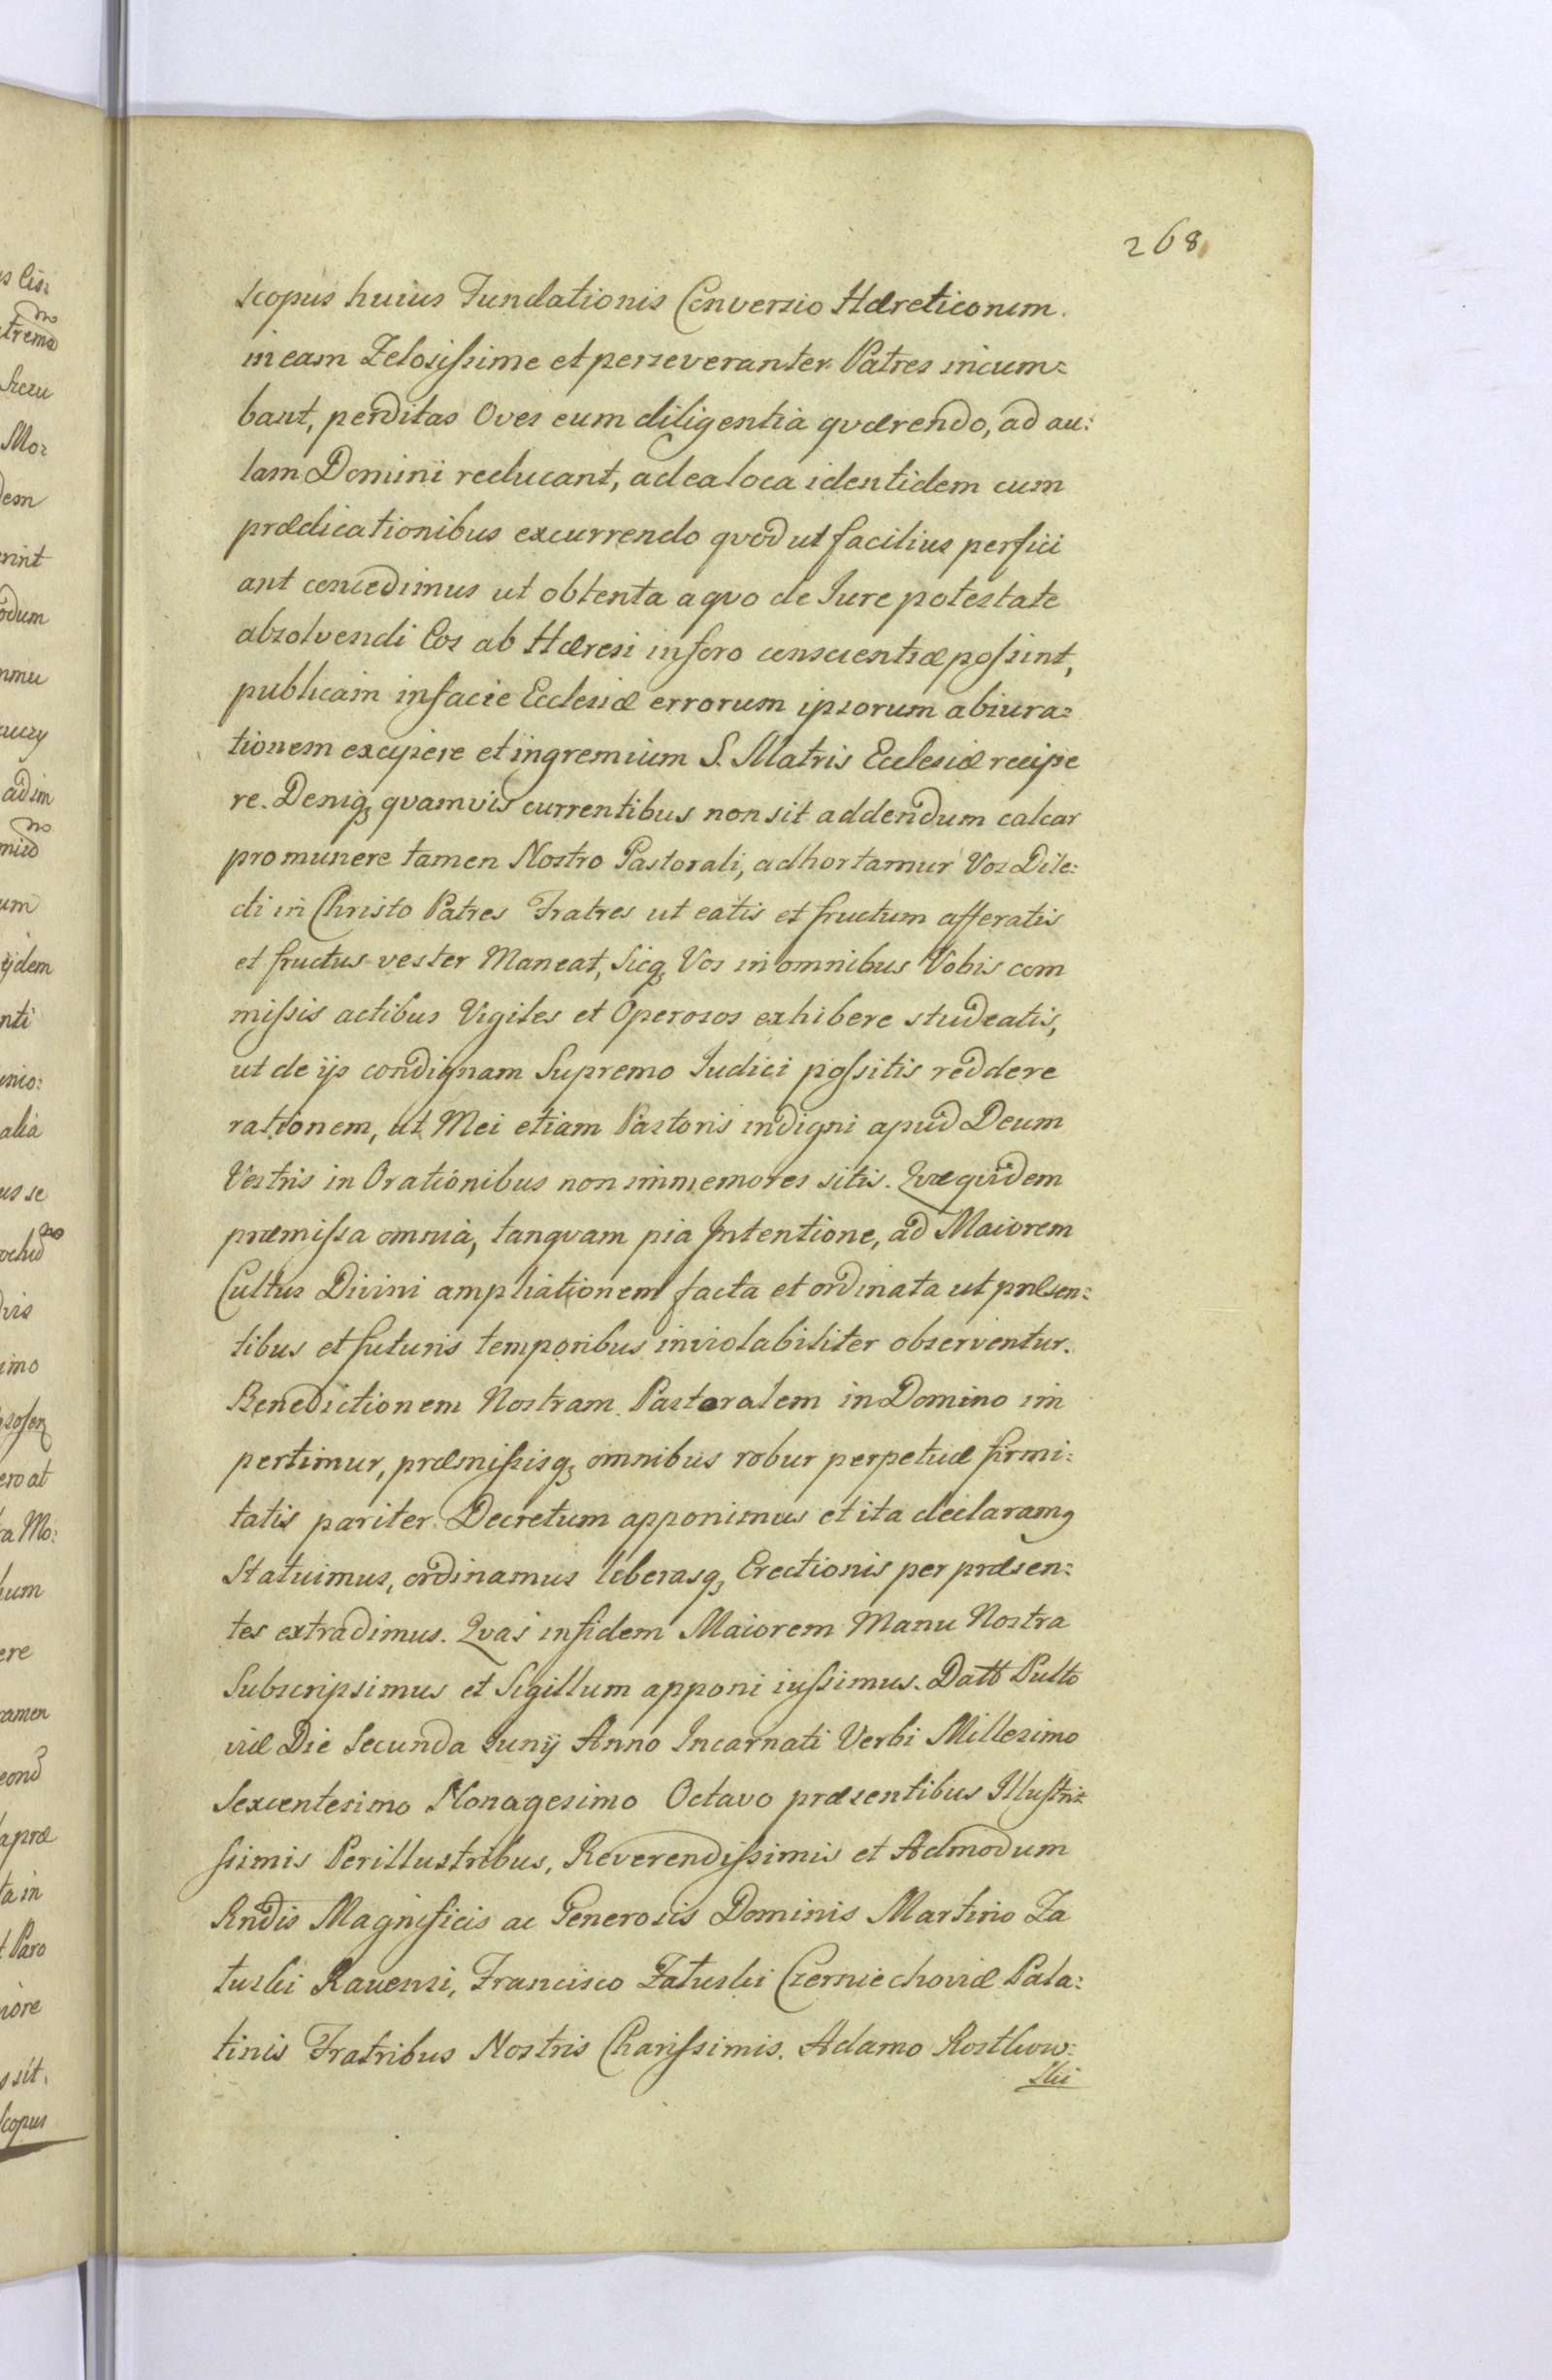 268
scopus huius Fundationis Conversio Hæreticorum.
in eam Zelosissime et perseveranter Patres incum=
bant, perditas Oves cum diligentia qværendo, ad au:
lam Domini reducant, ad ea loca identidem cum
prædicationibus excurrendo qvod ut facilius perfici
ant concedimus ut obtenta a qvo de Iure potestate
absolvendi Eos ab Hæresi in foro conscientiæ possint,
publicam in facie Ecclesiæ errorum ipsorum abiura=
tionem excipere et in gremium S. Matris Ecclesiæ recipe
re. Deniq, qvamvis currentibus non sit addendum calcar
pro munere tamen Nostro Pastorali, adhortamur Vos Dile=
cti in Christo Patres Fratres ut eatis et fructum afferatis
et fructus vester Maneat, Sicq, Vos in omnibus Vobis com
missis actibus Vigiles et Operosos exhibere studeatis,
ut de ijs condignam Supremo Iudici possitis reddere
rationem, ut Mei etiam Pastoris indigni apud Deum
Vestris in Orationibus non immemores sitis. Qvæ qvidem
præmissa omnia, tanqvam pia Intentione, ad Maiorem
Cultus Divini ampliationem facta et ordinata ut præsen=
tibus et futuris temporibus inviolabiliter observentur.
Benedictionem Nostram Pastoralem in Domino im
pertimur, præmissisq, omnibus robur perpetuæ firmi=
tatis pariter Decretum apponimus et ita declaramꝯ
Statuimus, ordinamus liberasq, Erectionis per præsen=
tes extradimus. Qvas in fidem Maiorem Manu Nostra
Subscripsimus et Sigillum apponi iussimus. Datt Pulto
viæ Die Secunda Iunij Anno Incarnati Verbi Millesimo
Sexcentesimo Nonagesimo Octavo præsentibus Illustri=
ssimis Perillustribus, Reverendissimis et Admodum
Rndis Magnificis ac Generosis Dominis Martino Za
tuski Ravensi, Francisco Zatuski Czerniechoviæ Pala=
tinis Fratribus Nostris Charissimis. Adamo Rostkow=
ski